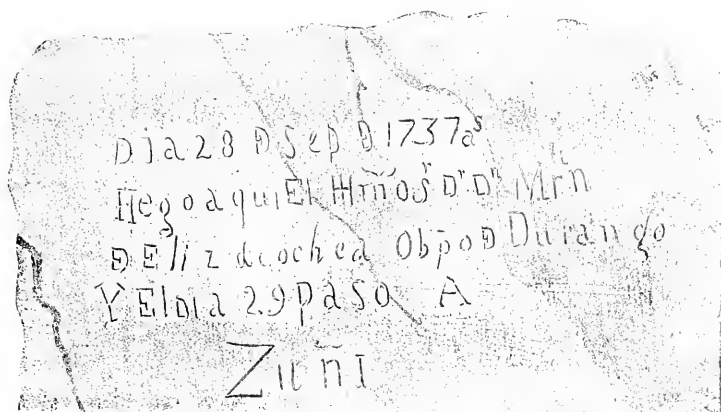 DIa 28 Đ Sep Đ 1737 aˢ
llego aqui El Illm̃o Sʳ Dʳ Dⁿ Mrñ
Đ Elizaecochea Obp̄o Đ Durango
Y El DIa 29 paso A
Zuñi